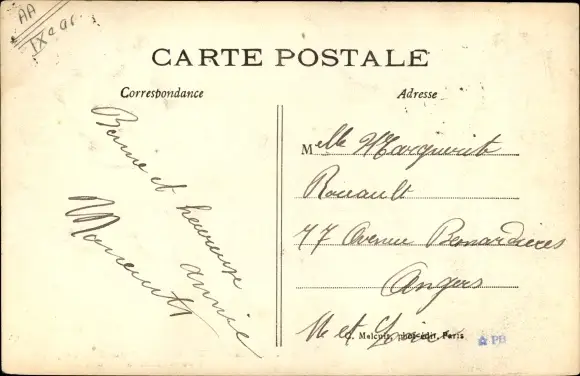 AA
IXe ar.
CARTE POSTALE
Correspondance
Adresse
Bonne et heureuse
année
Melle Marguerite
Rouault
77 Avenue Besnardières
Angers
M et Loire
C. Malcuit, phot-édit, Paris
PB